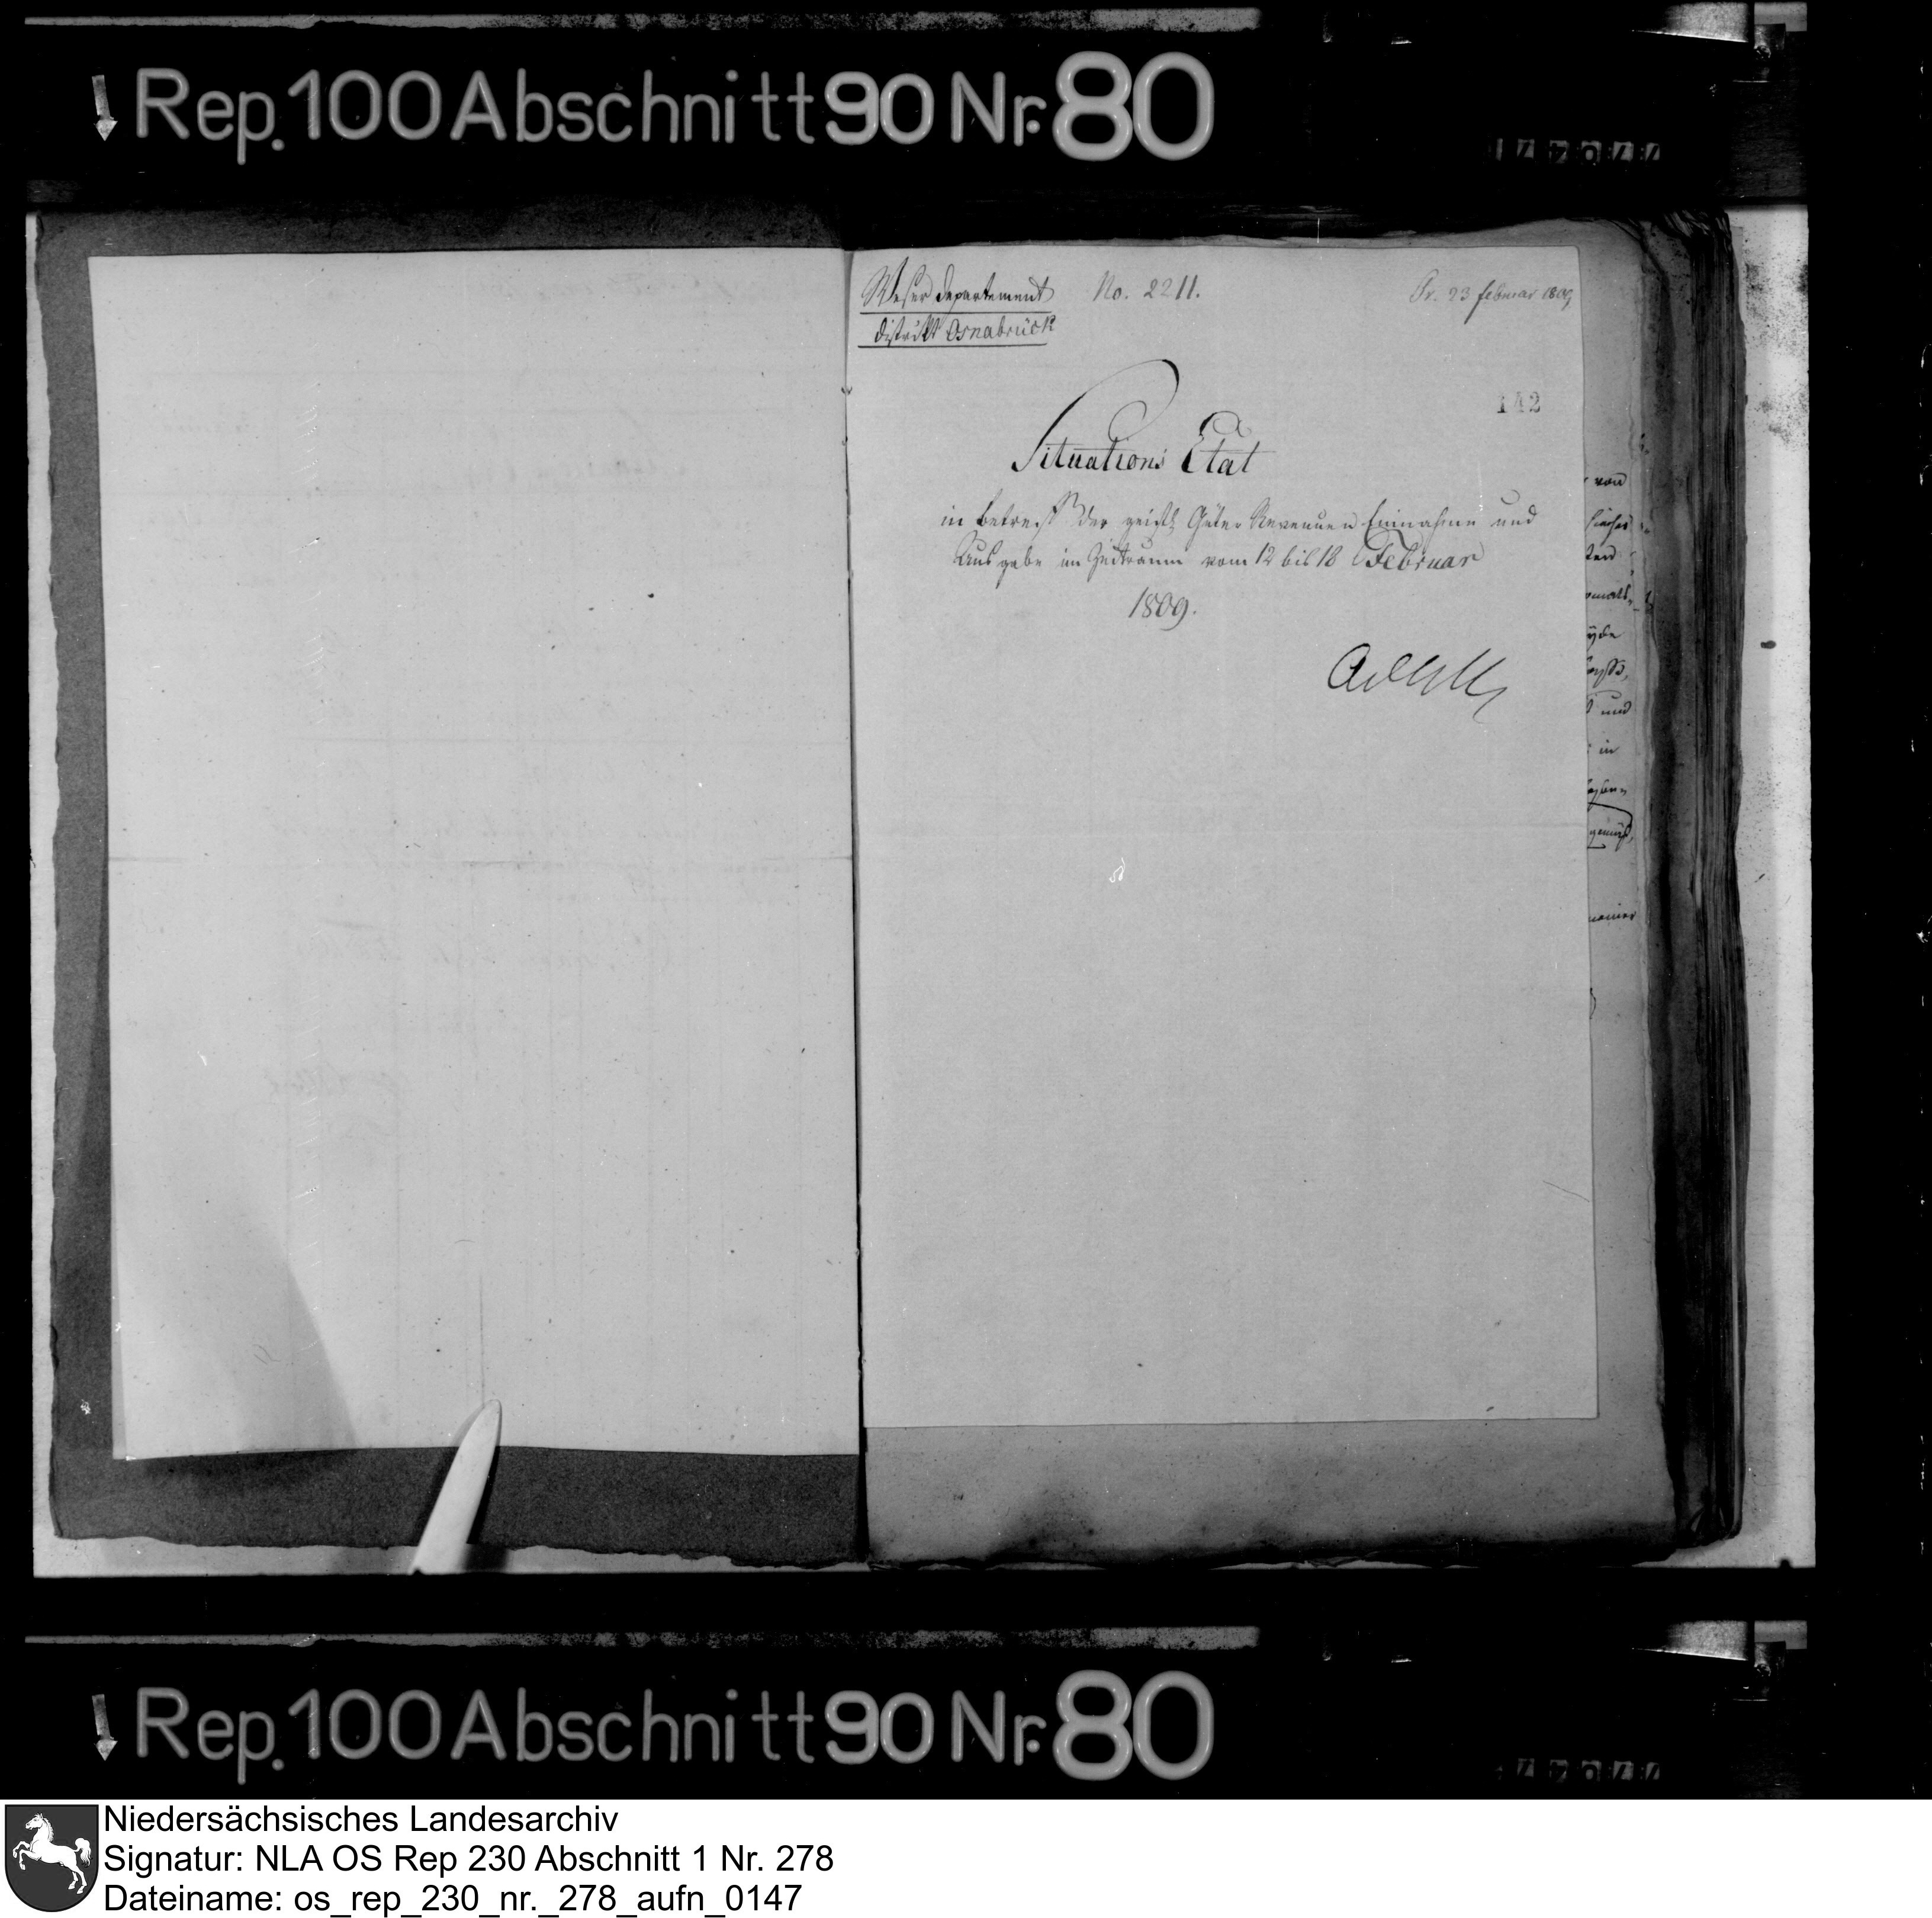 Rep. 100 Abschnitt 90 Nr. 80
Weser Departement No. 2211. Pr. 23 februar 1809
District Osnabrück
142
Situations Etat
in betreff der geistl. Güter Revenuen Einnahme und
Ausgabe im Zeitraum vom 12 bis 18 Februar
1809.
von
und
in
Rep. 100 Abschnitt 90 Nr. 80
Niedersächsisches Landesarchiv
Signatur: NLA OS Rep 230 Abschnitt 1 Nr. 278
Dateiname: os_rep_230_nr._278_aufn_0147